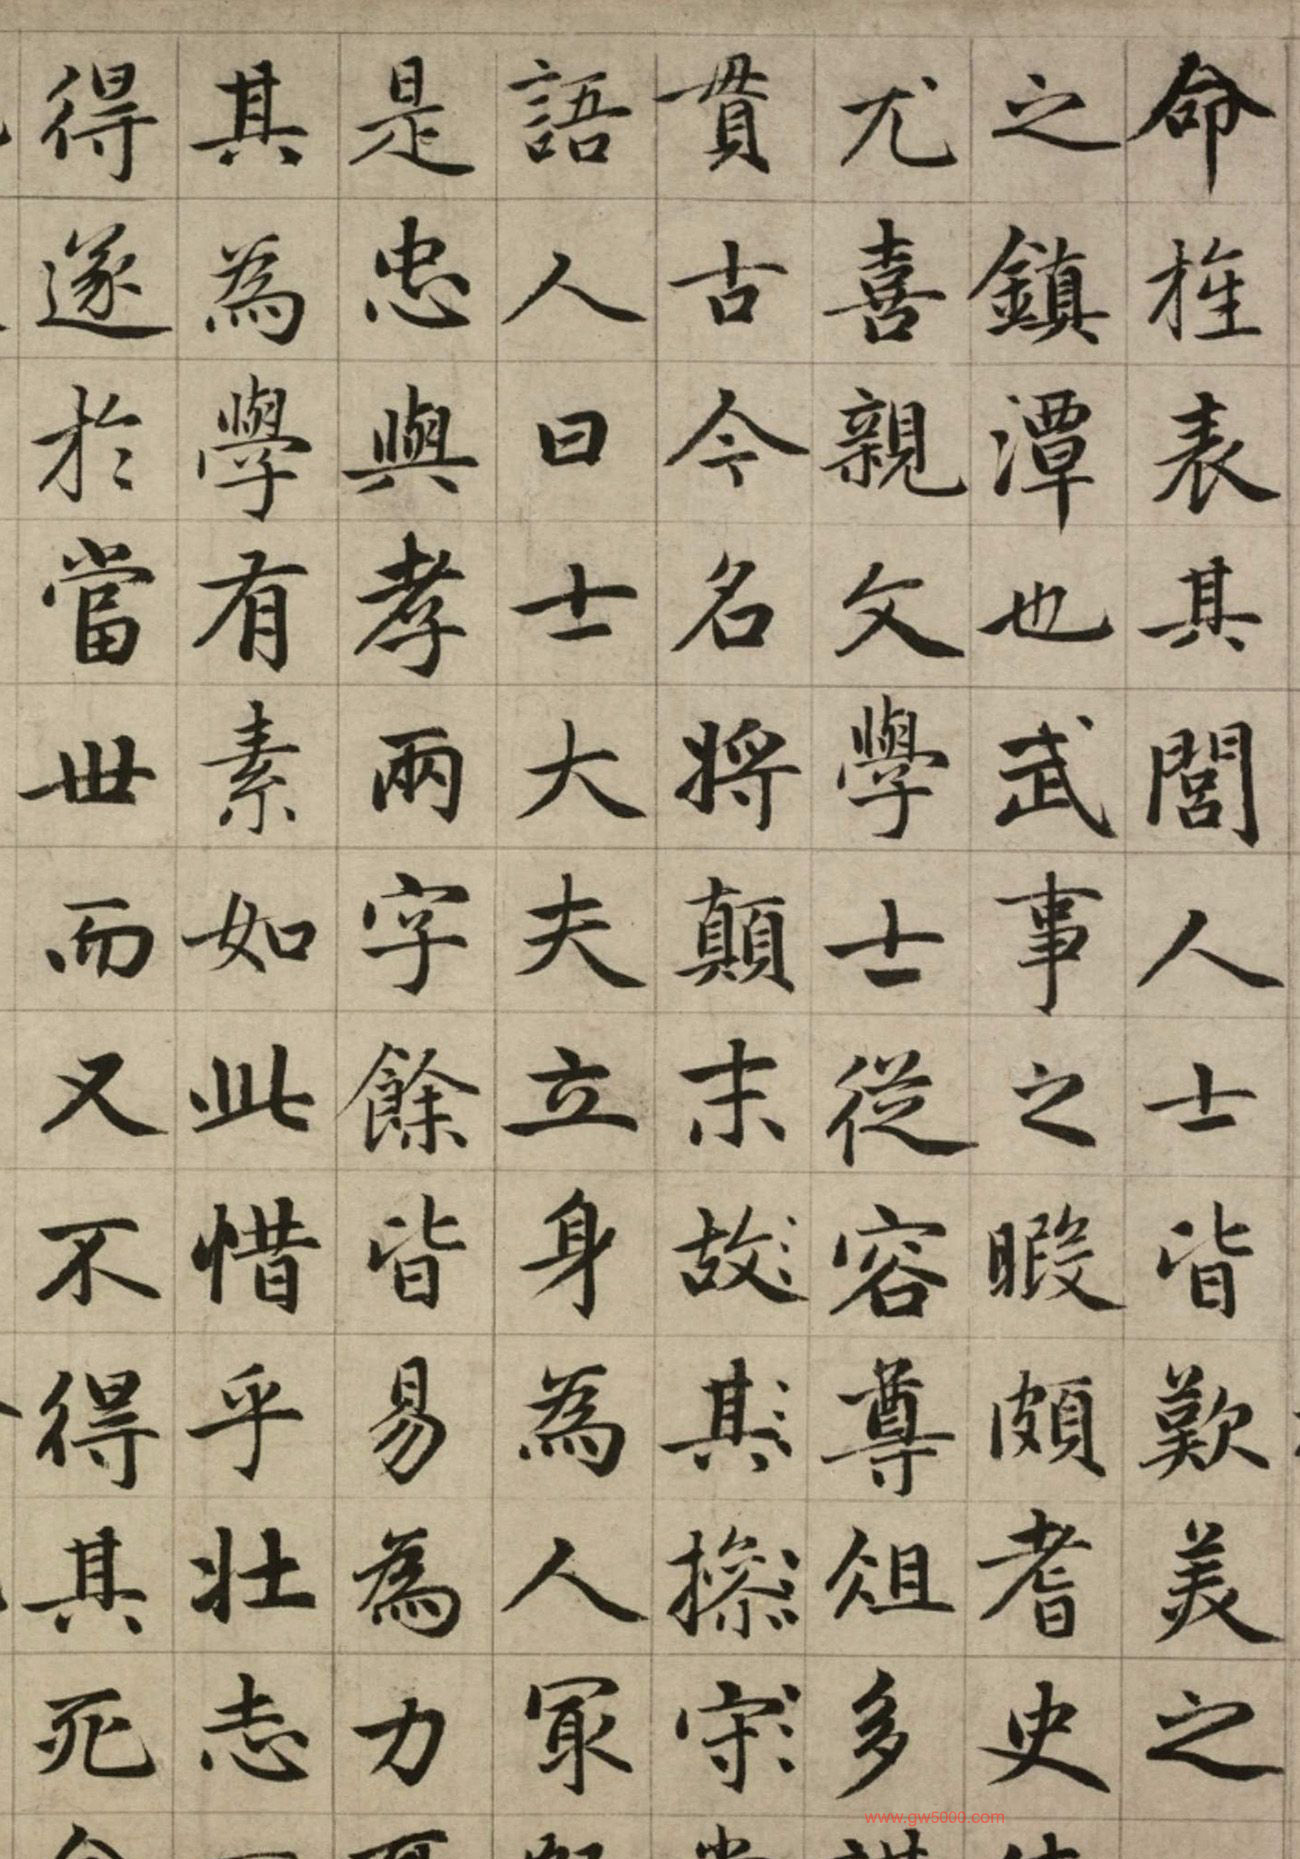 命旌表其閭人士皆歎美之
之鎮潭也武事之暇頗耆史
尤喜親文學士從容尊俎多
貫古今名將顛末故其操守
語人曰士大夫立身為人冣
是忠與孝兩字餘皆易為力
其為學有素如此惜乎壯志
得遂於當世而又不得其死
www.gw5000.com